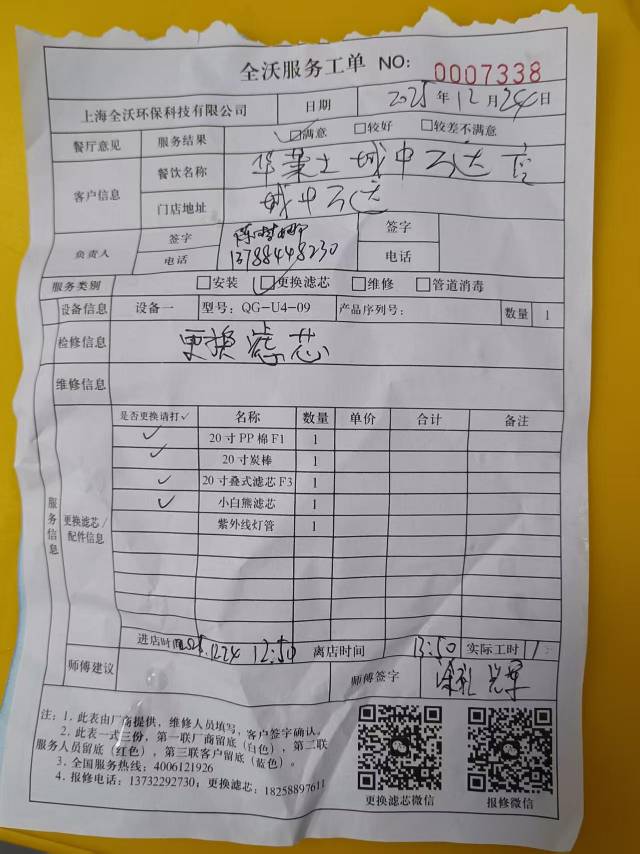 全沃服务工单 NO: 0007338
上海全沃环保科技有限公司 日期 2025年12月24日
餐厅意见 服务结果 ☑满意 □较好 □较差不满意
客户信息 餐饮名称 华莱士城中万达店
门店地址 城中万达
负责人 签字 签字
电话 13788448230 电话
服务类别 □安装 ☑更换滤芯 □维修 □管道消毒
设备信息 设备一 型号: QG-U4-09 产品序列号: 数量 1
检修信息 更换滤芯
维修信息
服务信息 更换滤芯/配件信息
是否更换请打✓ 名称 数量 单价 合计 备注
✓ 20寸PP棉F1 1
✓ 20寸炭棒 1
✓ 20寸叠式滤芯F3 1
✓ 小白熊滤芯 1
紫外线灯管 1
进店时间 2025.12.24 12:50 离店时间 13:50 实际工时 1
师傅建议 师傅签字
注: 1. 此表由厂商提供, 维修人员填写, 客户签字确认。
2. 此表一式三份, 第一联厂商留底（白色）, 第二联
服务人员留底（红色）, 第三联客户留底（蓝色）。
3. 全国服务热线: 4006121926
4. 报修电话: 13732292730; 更换滤芯: 18258897611
更换滤芯微信 报修微信